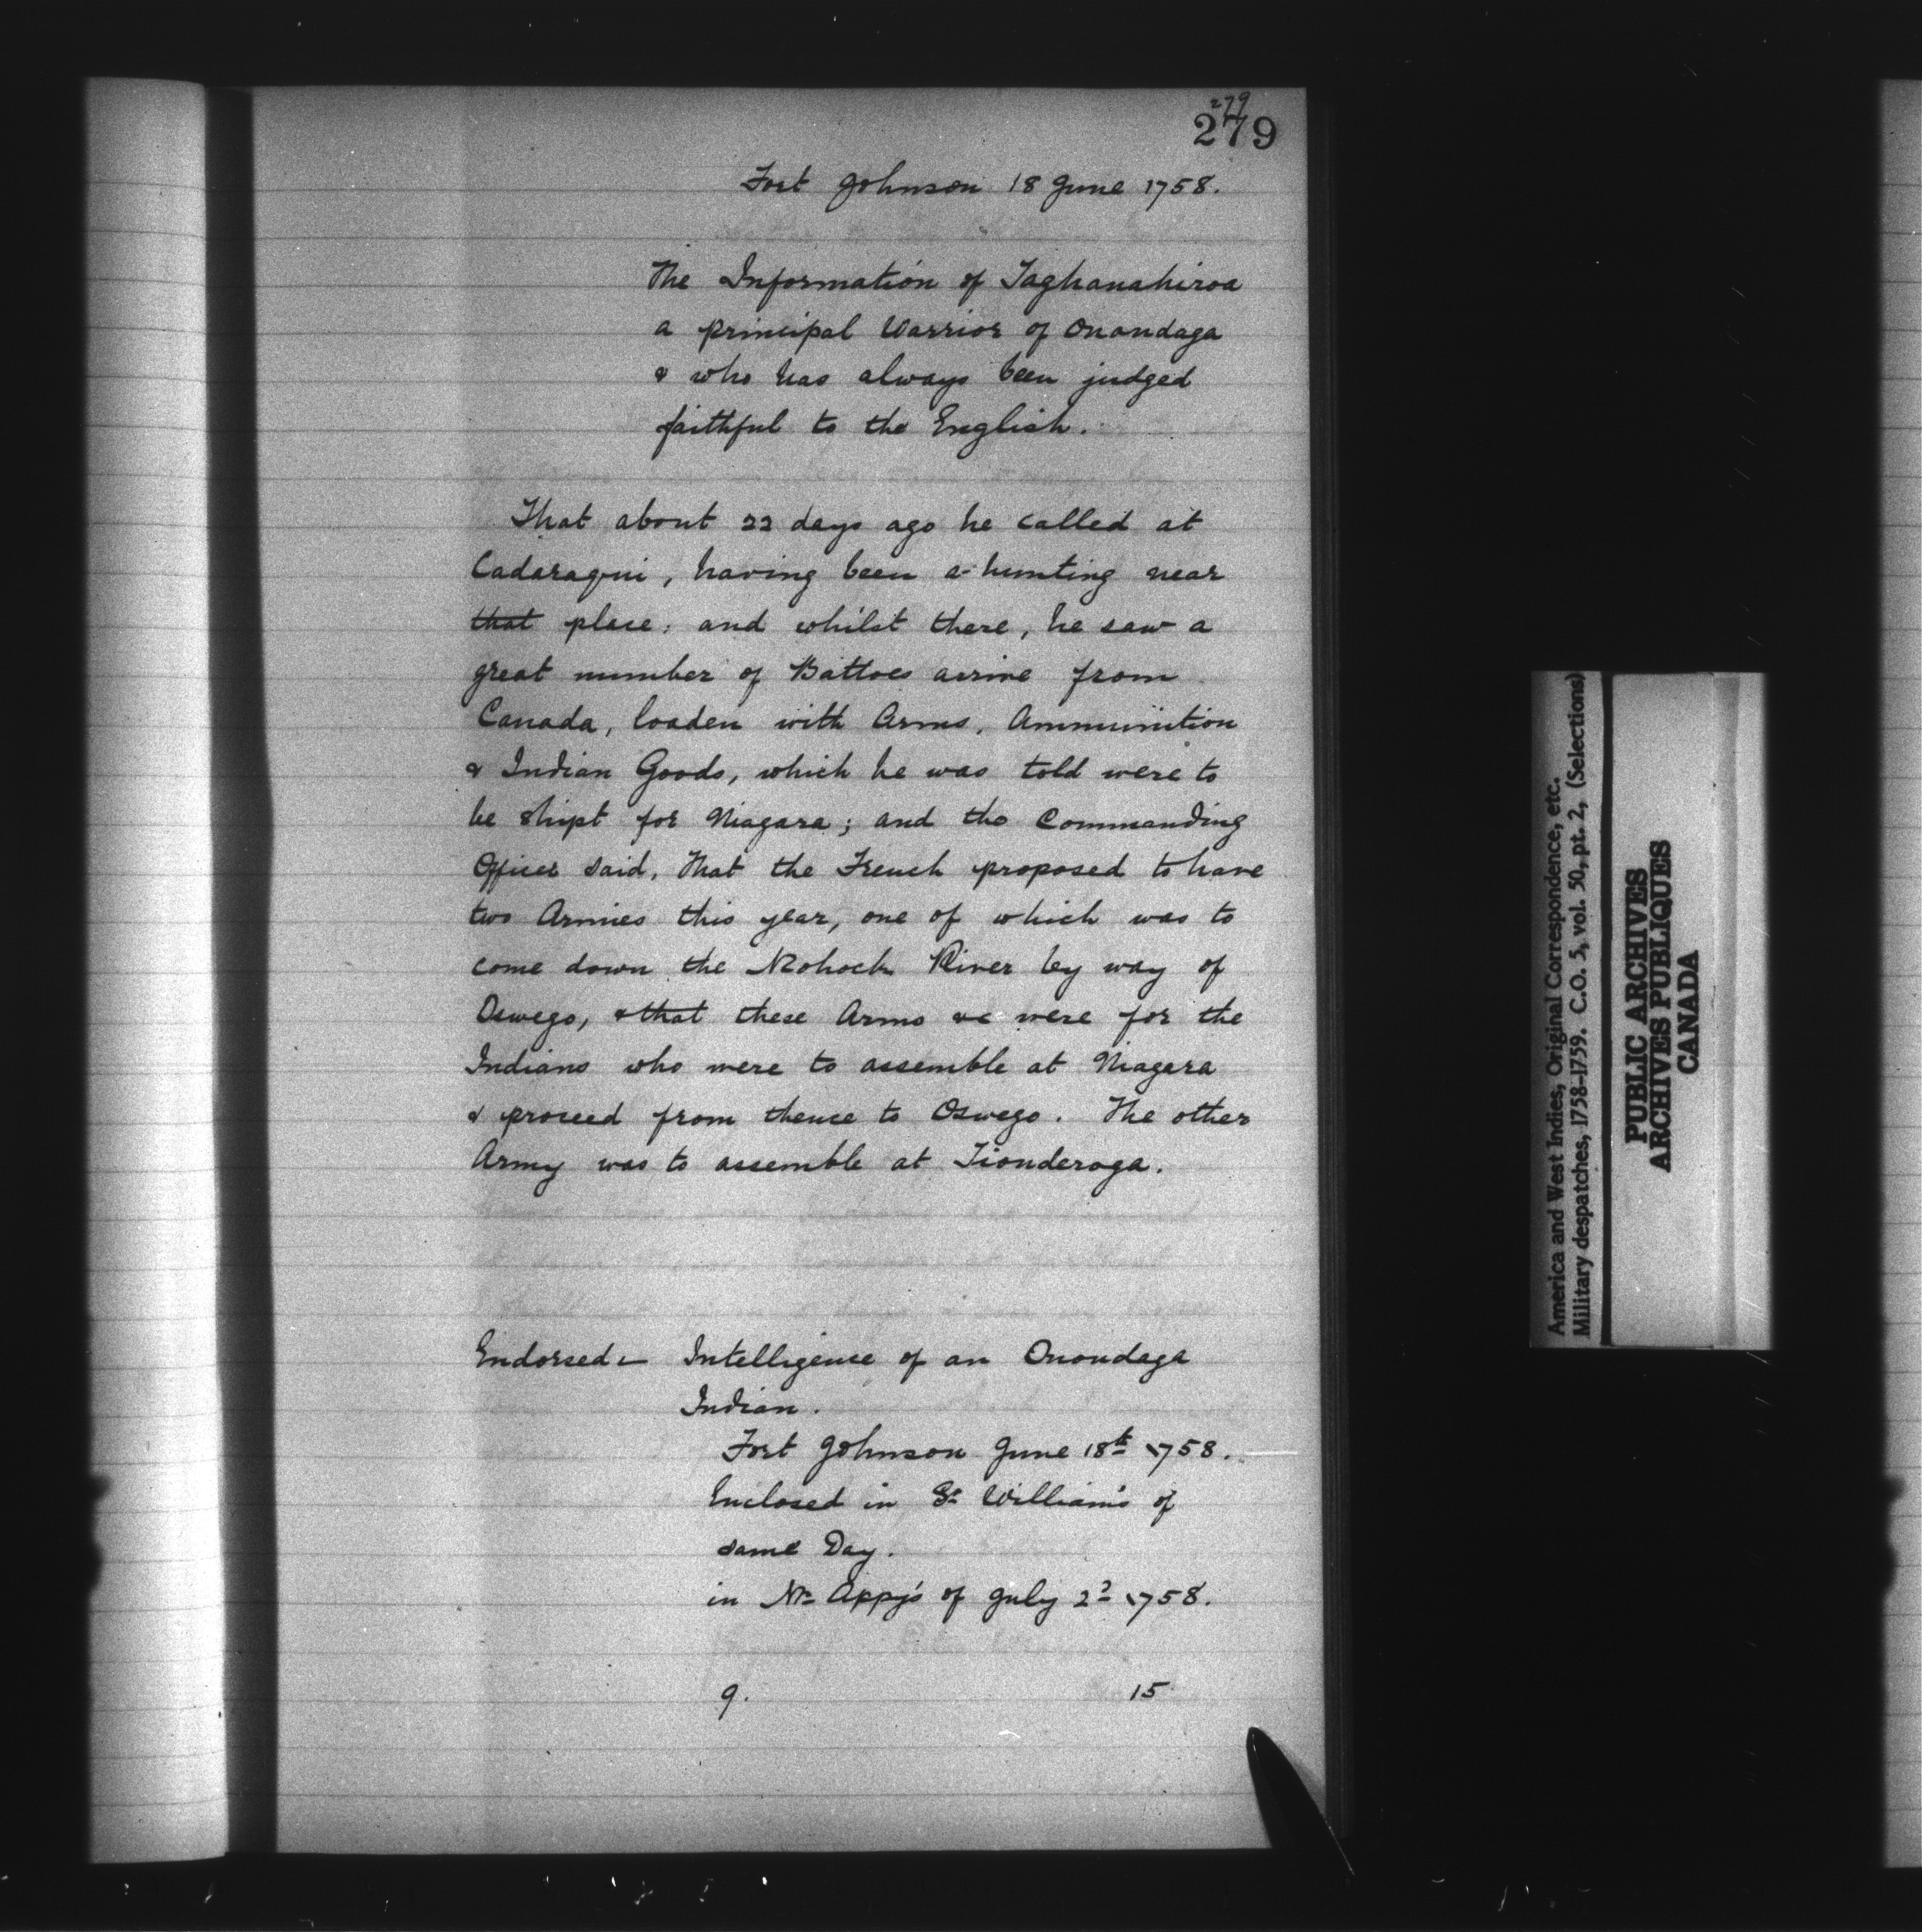 279
279
Fort Johnson 18 June 1758.
The Information of Taghanahiroa
a principal Warrior of Onondaga
& who has always been judged
faithful to the English.
That about 22 days ago he called at
Cadaraqui, having been a-hunting near
that place; and whilst there, he saw a
great number of Battoes arrive from
Canada, loaden with Arms, Ammunition
& Indian Goods, which he was told were to
be shipt for Niagara; and the Commanding
Officer said, that the French proposed to have
two Armies this year, one of which was to
come down the Mohock River by way of
Oswego, & that these Arms &c were for the
Indians who were to assemble at Niagara
& proceed from thence to Oswego. The other
Army was to assemble at Tionderoga.
Endorsed:- Intelligence of an Onondaga
Indian.
Fort Johnson June 18th 1758.
Enclosed in Sr William's of
same Day.
in Mr Appy's of July 2d 1758.
9. 15
America and West Indies, Original Correspondence, etc.
Military despatches, 1758-1759. C.O. 5, vol. 50, pt. 2, (Selections)
PUBLIC ARCHIVES
ARCHIVES PUBLIQUES
CANADA